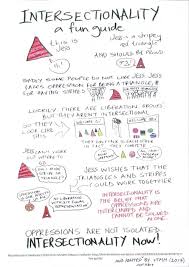 INTERSECTIONALITY
a fun guide
THIS IS
JESS
JESS IS A STRIPEY
RED TRIANGLE
AND SHOULD BE PROUD
SADLY SOME PEOPLE DO NOT LIKE JESS. JESS
FACES OPPRESSION FOR BEING A TRIANGLE &
FOR HAVING STRIPES
LUCKILY THERE ARE LIBERATION GROUPS
BUT THEY AREN'T INTERSECTIONAL
SO THEY
LOOK LIKE
THIS
JESS CAN'T WORK
OUT WHERE
TO GO
JESS WISHES THAT THE
TRIANGLES AND STRIPES
COULD WORK TOGETHER
INTERSECTIONALITY IS
THE BELIEF THAT
OPPRESSIONS ARE
INTERLINKED AND
CANNOT BE SOLVED
ALONE
OPPRESSIONS ARE NOT ISOLATED.
INTERSECTIONALITY NOW!